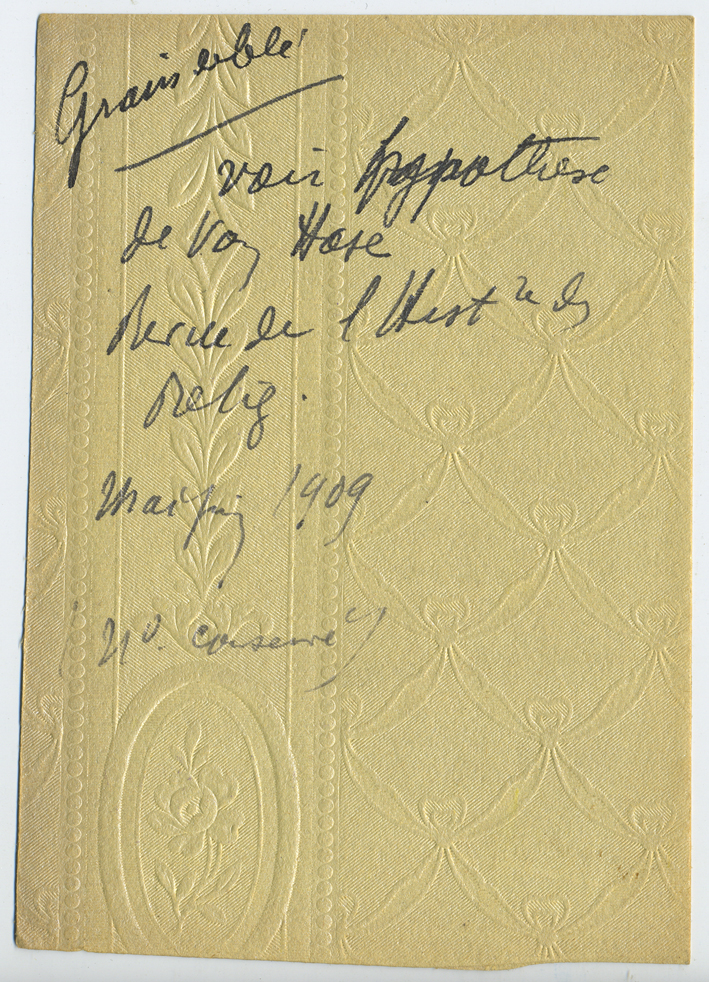 voir hypothese
de Von Hase
Revue de l Hist re des
Relig.
Mai juin 1909
(N°. conservé)